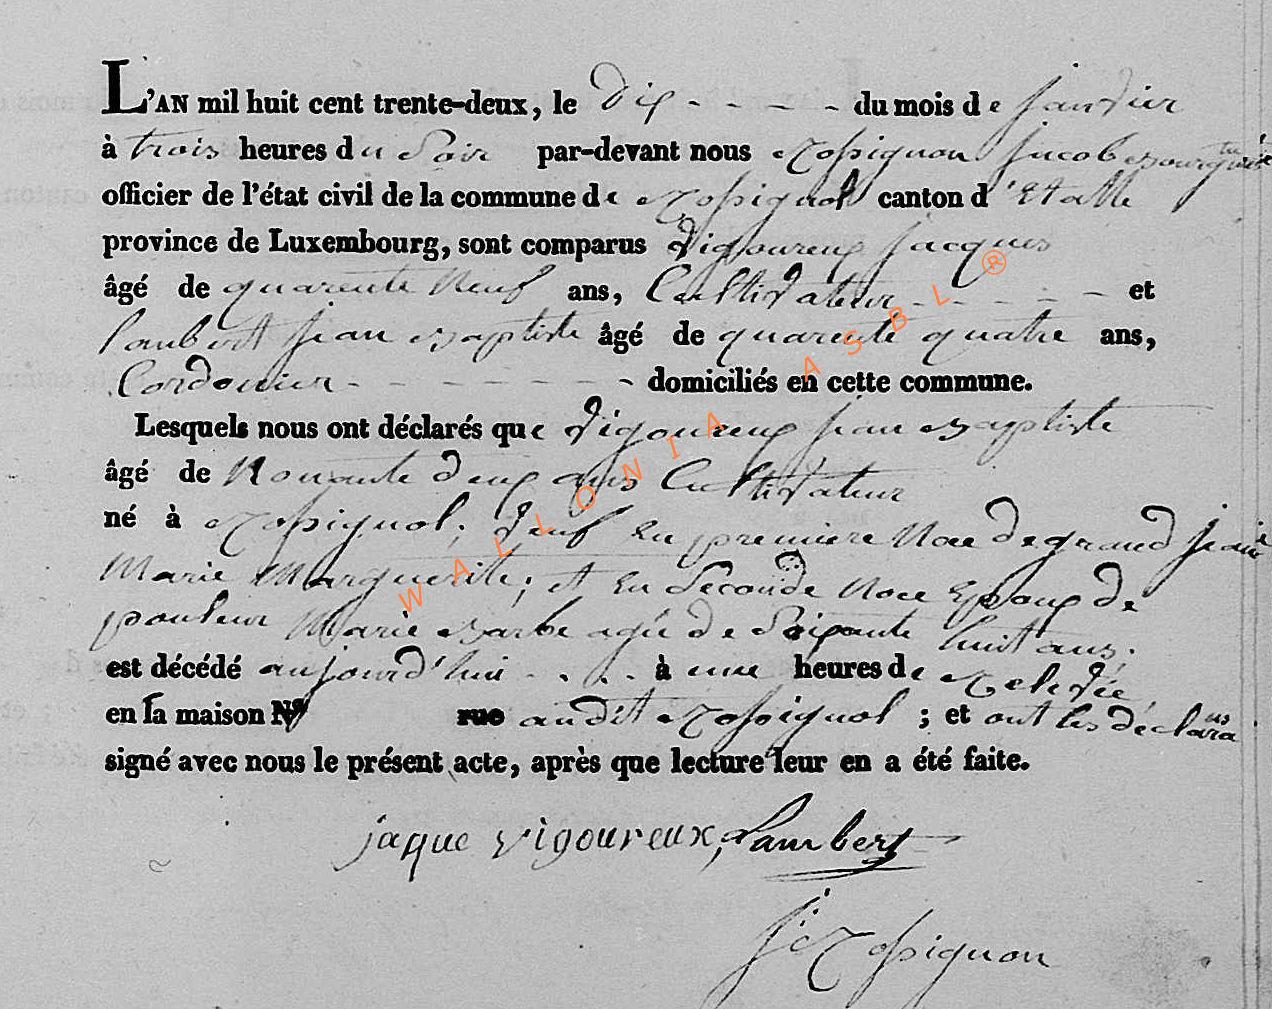 L'AN mil huit cent trente-deux, le dix - - - - du mois de janvier
à trois heures du Soir par-devant nous Rossignon Jacob
officier de l'état civil de la commune de Rossignol canton d'Etalle
province de Luxembourg, sont comparus Vigoureux Jacques
âgé de quarente Neuf ans, Cultivateur - - - - - et
Lambert Jean Baptiste âgé de quarente quatre ans,
Cordonier - - - - - - - - domiciliés en cette commune.
Lesquels nous ont déclarés que Vigoureux Jean Baptiste
âgé de Nonante deux ans Cultivateur
né à Rossignol; Veuf en premiere Noce Degrand Jeanne
Marie Marguerite; et en Seconde Noce Epoux de
pouleur Marie Barbe agée de Soixante huit ans.
est décédé aujourd'hui - . . . à une heures de Relevée
en la maison No rue audit Rossignol ; et ont les déclarans
signé avec nous le présent acte, après que lecture leur en a été faite.
jaque vigoureux, Lambert
J Rossignon
WALLONIA ASBL ®